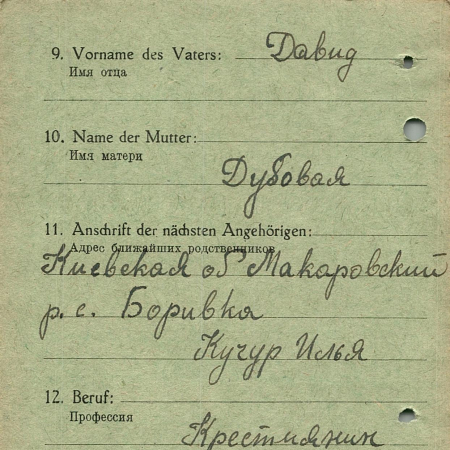 9. Vorname des Vaters: Давид
Имя отца
10. Name der Mutter:
Имя матери
Дубовая
11. Anschrift der nächsten Angehörigen:
Адрес ближайших родственников
Киевская об Макаровский
р. с. Боривка
Кучур Илья
12. Beruf:
Профессия
Крестиянин